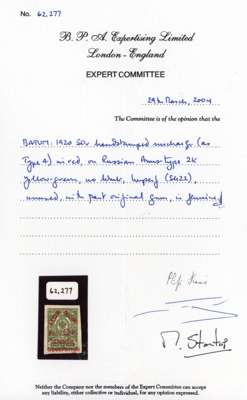 No. 62,277
B. P. A. Expertising Limited
London - England
EXPERT COMMITTEE
29th March, 2004
The Committee is of the opinion that the
BATUM: 1920 50r handstamped surcharge (as
Type 4) in red, on Russian Arms type 2k
yellow-green, no wmk, imperf (SG22),
unused, with part original gum, is genuine
62,277
Neither the Company nor the members of the Expert Committee can accept
any liability, either collective or individual, for any opinion expressed.